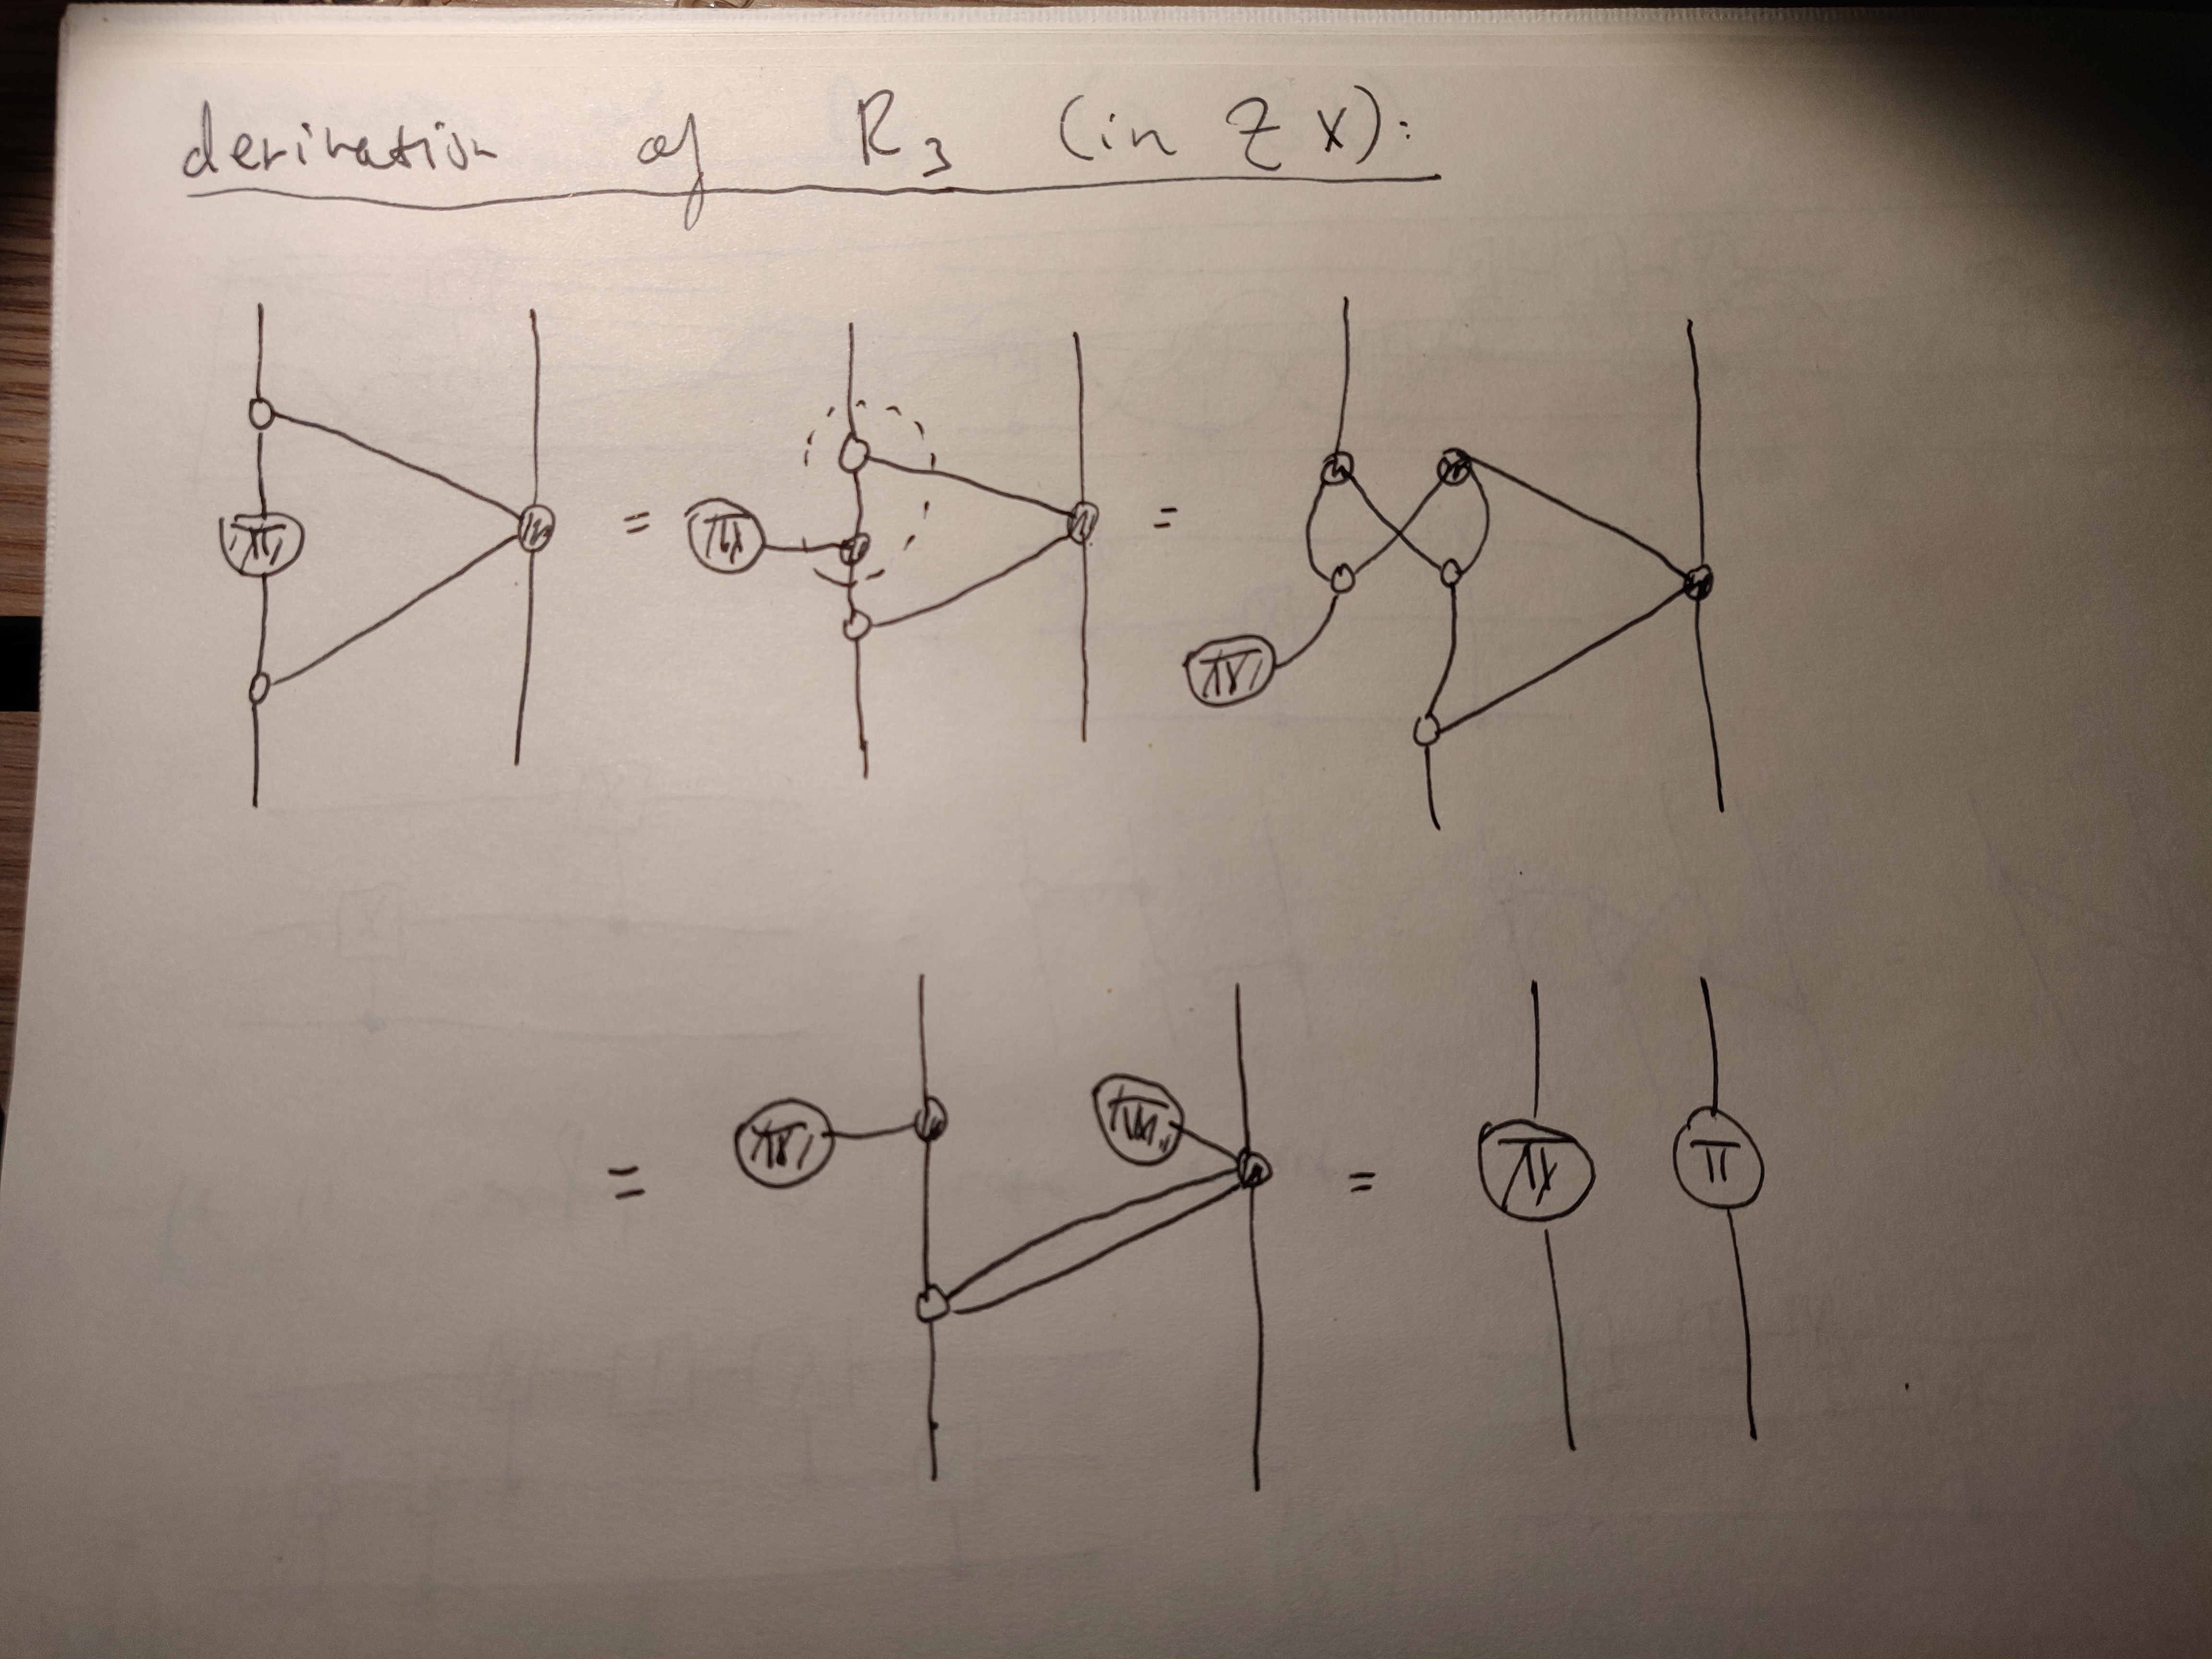 derivation of R3 (in ZX):
π = π = π
= π π = π π